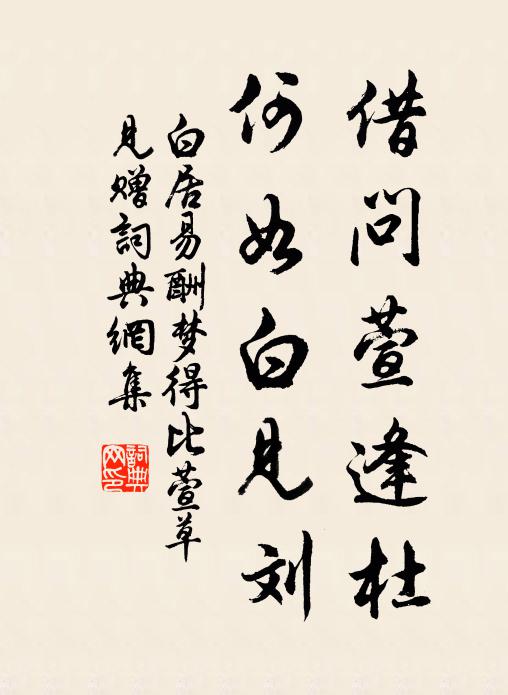 借问萱逢杜
何如白见刘
白居易酬梦得比萱草
见赠词典網集
詞典网印